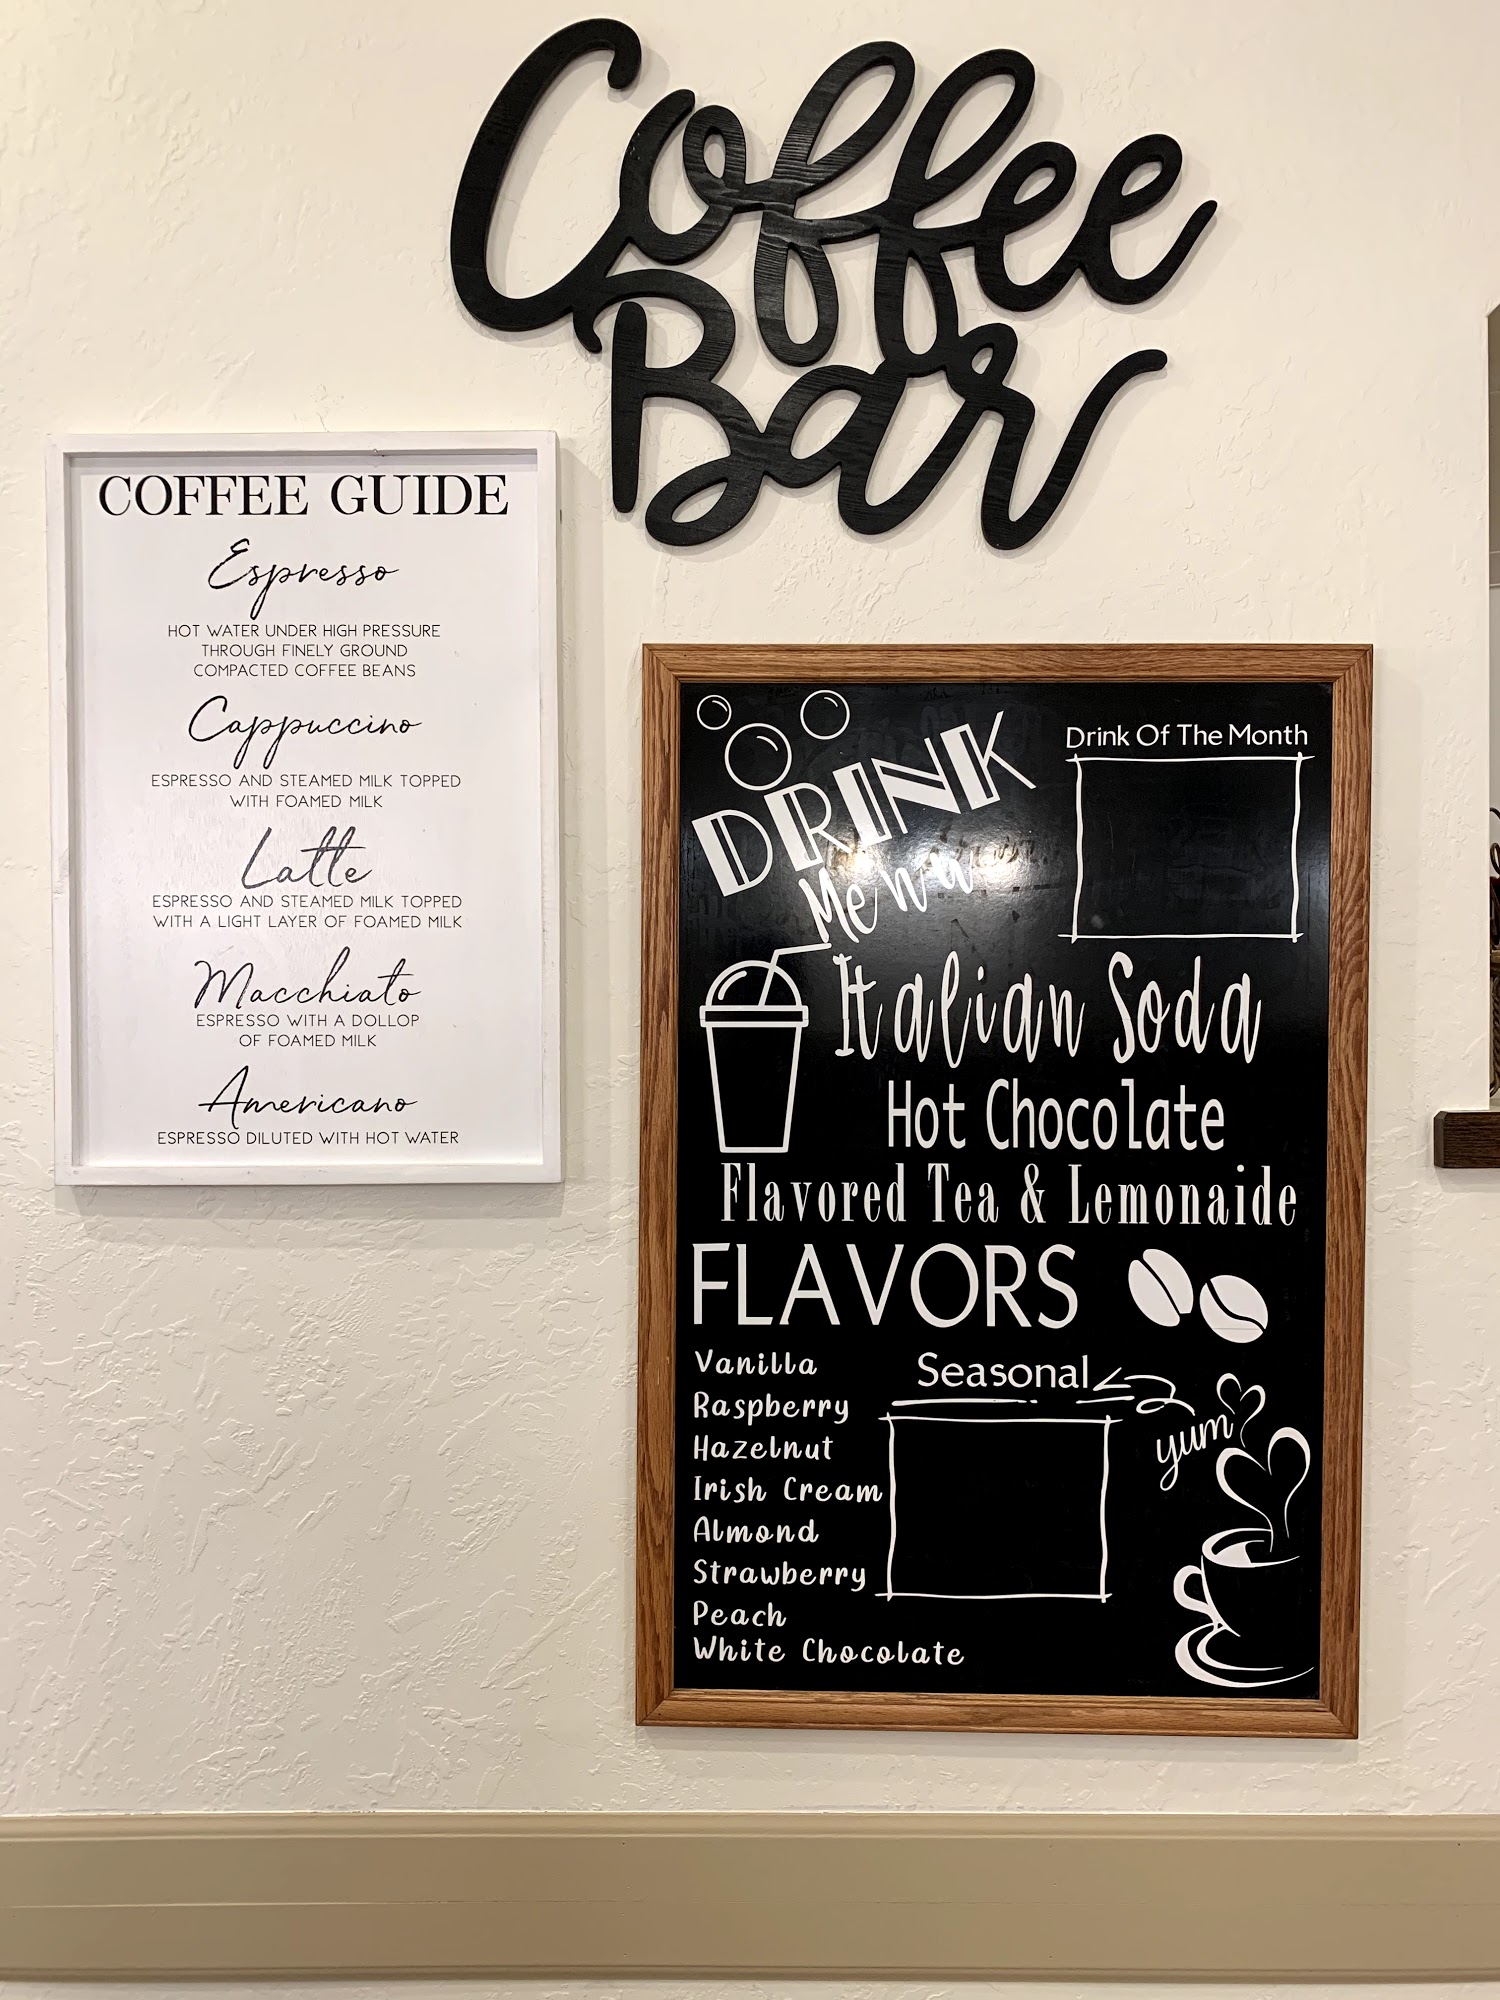 Coffee
Bar
COFFEE GUIDE
Espresso
HOT WATER UNDER HIGH PRESSURE
THROUGH FINELY GROUND
COMPACTED COFFEE BEANS
Cappuccino
ESPRESSO AND STEAMED MILK TOPPED
WITH FOAMED MILK
Latte
ESPRESSO AND STEAMED MILK TOPPED
WITH A LIGHT LAYER OF FOAMED MILK
Macchiato
ESPRESSO WITH A DOLLOP
OF FOAMED MILK
Americano
ESPRESSO DILUTED WITH HOT WATER
DRINK
Menu
Drink Of The Month
Italian Soda
Hot Chocolate
Flavored Tea & Lemonaide
FLAVORS
Vanilla
Raspberry
Hazelnut
Irish Cream
Almond
Strawberry
Peach
White Chocolate
Seasonal
yum